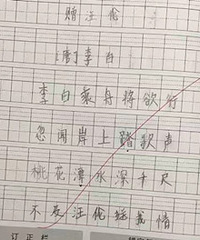 赠汪伦
[唐]李白
李白乘舟将欲行
忽闻岸上踏歌声
桃花潭水深千尺
不及汪伦送我情
订正栏